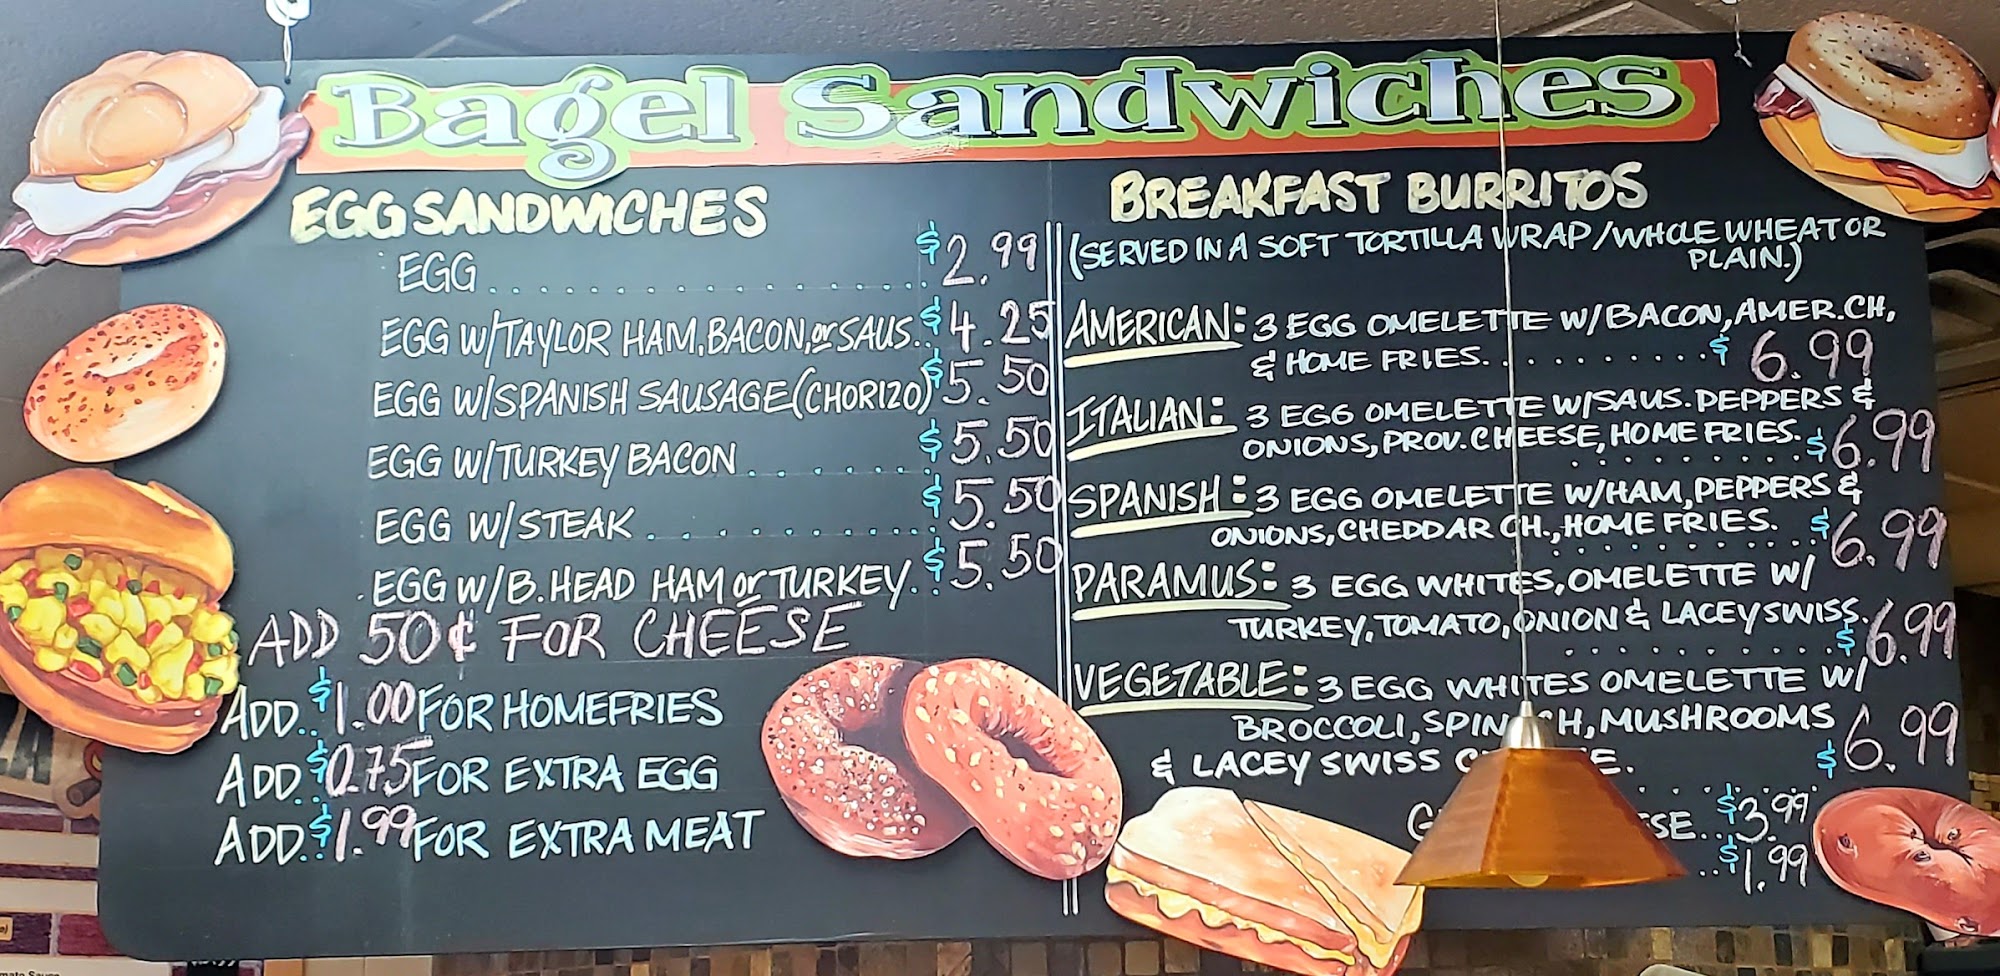 Bagel Sandwiches
EGG SANDWICHES
EGG.................$2.99
EGG W/TAYLOR HAM, BACON, or SAUS..$4.25
EGG W/SPANISH SAUSAGE (CHORIZO) $5.50
EGG W/TURKEY BACON.......$5.50
EGG W/STEAK..........$5.50
EGG W/B.HEAD HAM or TURKEY..$5.50
ADD 50¢ FOR CHEESE
ADD..$1.00 FOR HOMEFRIES
ADD..$0.75 FOR EXTRA EGG
ADD..$1.99 FOR EXTRA MEAT
BREAKFAST BURRITOS
(SERVED IN A SOFT TORTILLA WRAP/WHOLE WHEAT OR
PLAIN.)
AMERICAN: 3 EGG OMELETTE W/BACON, AMER.CH,
& HOME FRIES..........$6.99
ITALIAN: 3 EGG OMELETTE W/SAUS. PEPPERS &
ONIONS, PROV. CHEESE, HOME FRIES.
..........$6.99
SPANISH: 3 EGG OMELETTE W/HAM, PEPPERS &
ONIONS, CHEDDAR CH., HOME FRIES.
..........$6.99
PARAMUS: 3 EGG WHITES, OMELETTE W/
TURKEY, TOMATO, ONION & LACEY SWISS.
..........$6.99
VEGETABLE: 3 EGG WHITES OMELETTE W/
BROCCOLI, SPINACH, MUSHROOMS
& LACEY SWISS
$6.99
$3.99
..$1.99